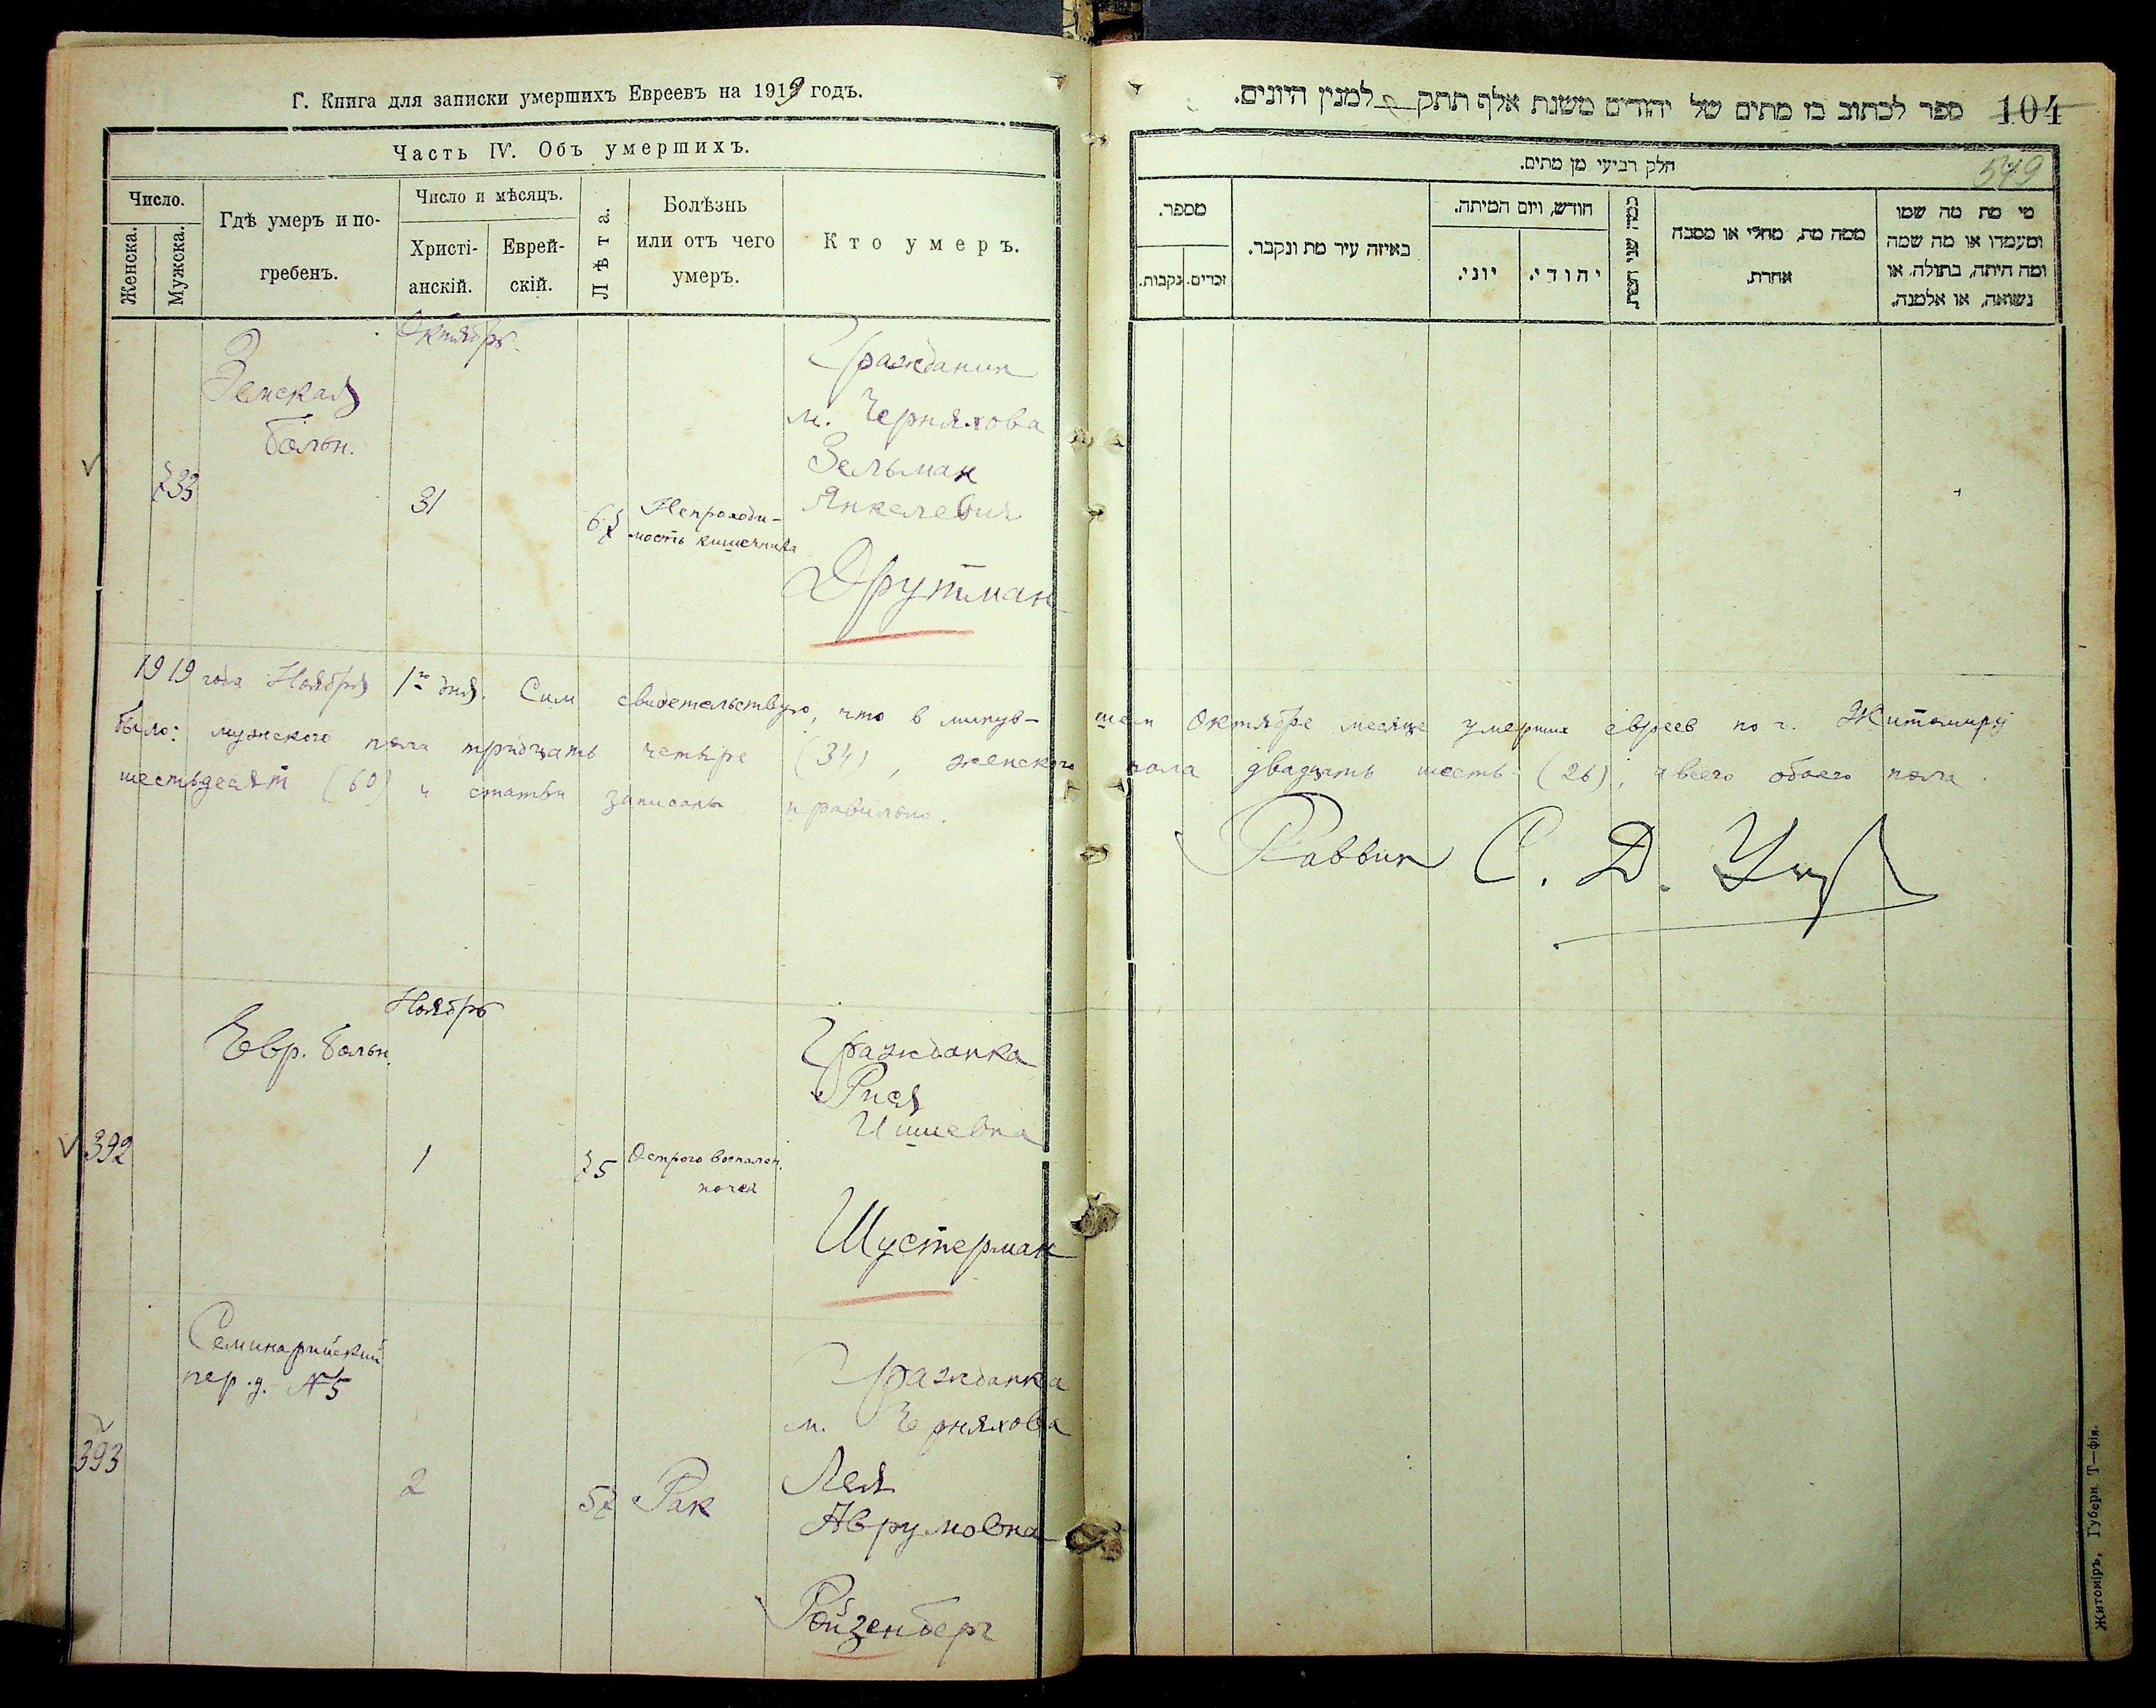 Г. Книга для записки умершихъ Евреевъ на 1919 годъ.
Часть IV. Объ умершихъ.
Число.
Женска.
Мужска.
Гдѣ умеръ и по-
гребенъ.
Число и мѣсяцъ.
Христі-
анскій.
Еврей-
скій.
Лѣта.
Болѣзнь
или отъ чего
умеръ.
Кто умеръ.
Октябрь
Земская
больн.
733
31
Непроходи-
мость кишечника
Гражданин
м. Черняхова
Зельман
Янкелевич
Друтман
1919 года Ноября 1го дня. Сим свидетельствую, что в минув-шем Октябре месяце умерших евреев по г. Житомиру
было: мужского пола тридцать четыре (34), женского пола двадцать шесть (26), а всего обоего пола
шестьдесят (60) и статьи записаны правильно.
Раввин С. Д.
Ноябрь
Евр. больн.
392
1
Острого воспален.
почек
Гражданка
Рися
Шустерман
Семинарийский
пер. д. №5
393
2
Рак
Гражданка
м. Черняхова
Лея
Аврумовна
Ройзенберг
104 ספר לכתוב בו מתים של יהודים משנת אלף תתק למנין היונים.
549
חלק רביעי מן מתים.
מספר.
זכרים.
נקבות.
באיזה עיר מת ונקבר.
חודש, ויום המיתה.
יוני.
יהודי.
ממה מת, מחלי או מסבה
אחרת.
מי מת מה שמו
ומעמדו או מה שמה
ומה היתה, בתולה, או
נשואה, או אלמנה.
Житоміръ, Губерн. Т—фія.